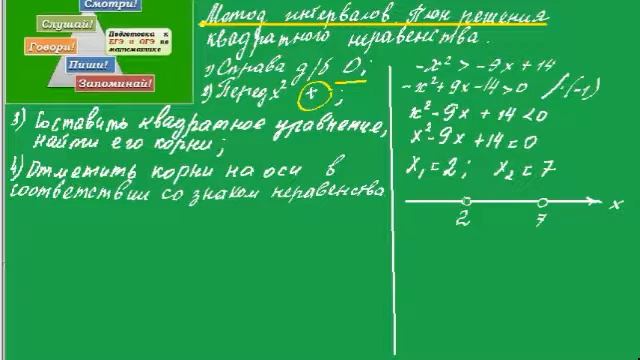 Смотри!
Слушай!
Говори!
Пиши!
Запоминай!
Подготовка к
ЕГЭ и ОГЭ по
математике
Метод интервалов. План решения
квадратного неравенства.
1) Справа д/б 0;
2) Перед x² (+);
3) Составить квадратное уравнение,
найти его корни;
4) Отметить корни на оси в
соответствии со знаком неравенства
-x² > -9x + 14
-x² + 9x - 14 > 0 /·(-1)
x² - 9x + 14 < 0
x² - 9x + 14 = 0
x₁ = 2; x₂ = 7
2 7 x